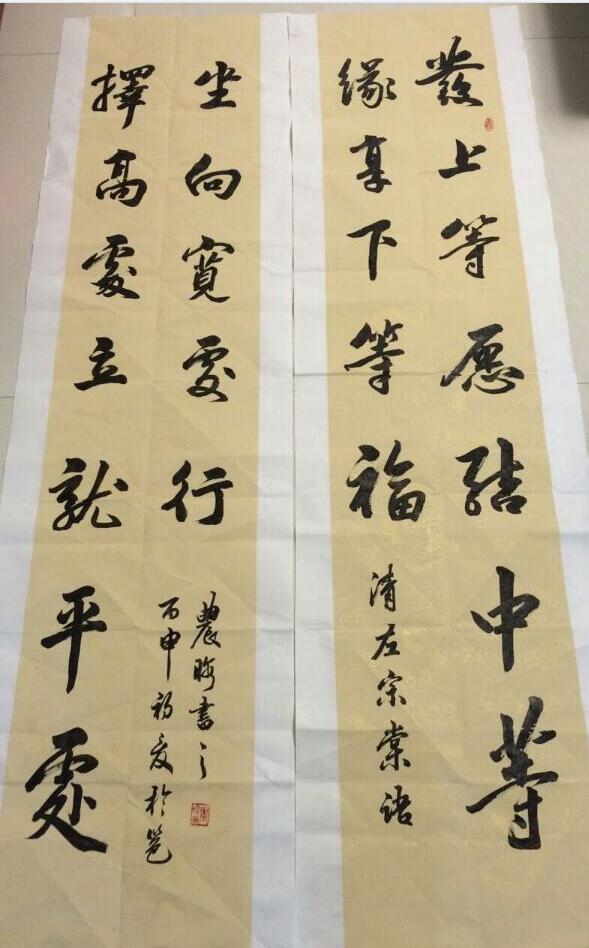 發上等愿結中等
緣享下等福
清左宗棠語
擇高處立就平處
坐向寬處行
丙申初夏於邕
農書之